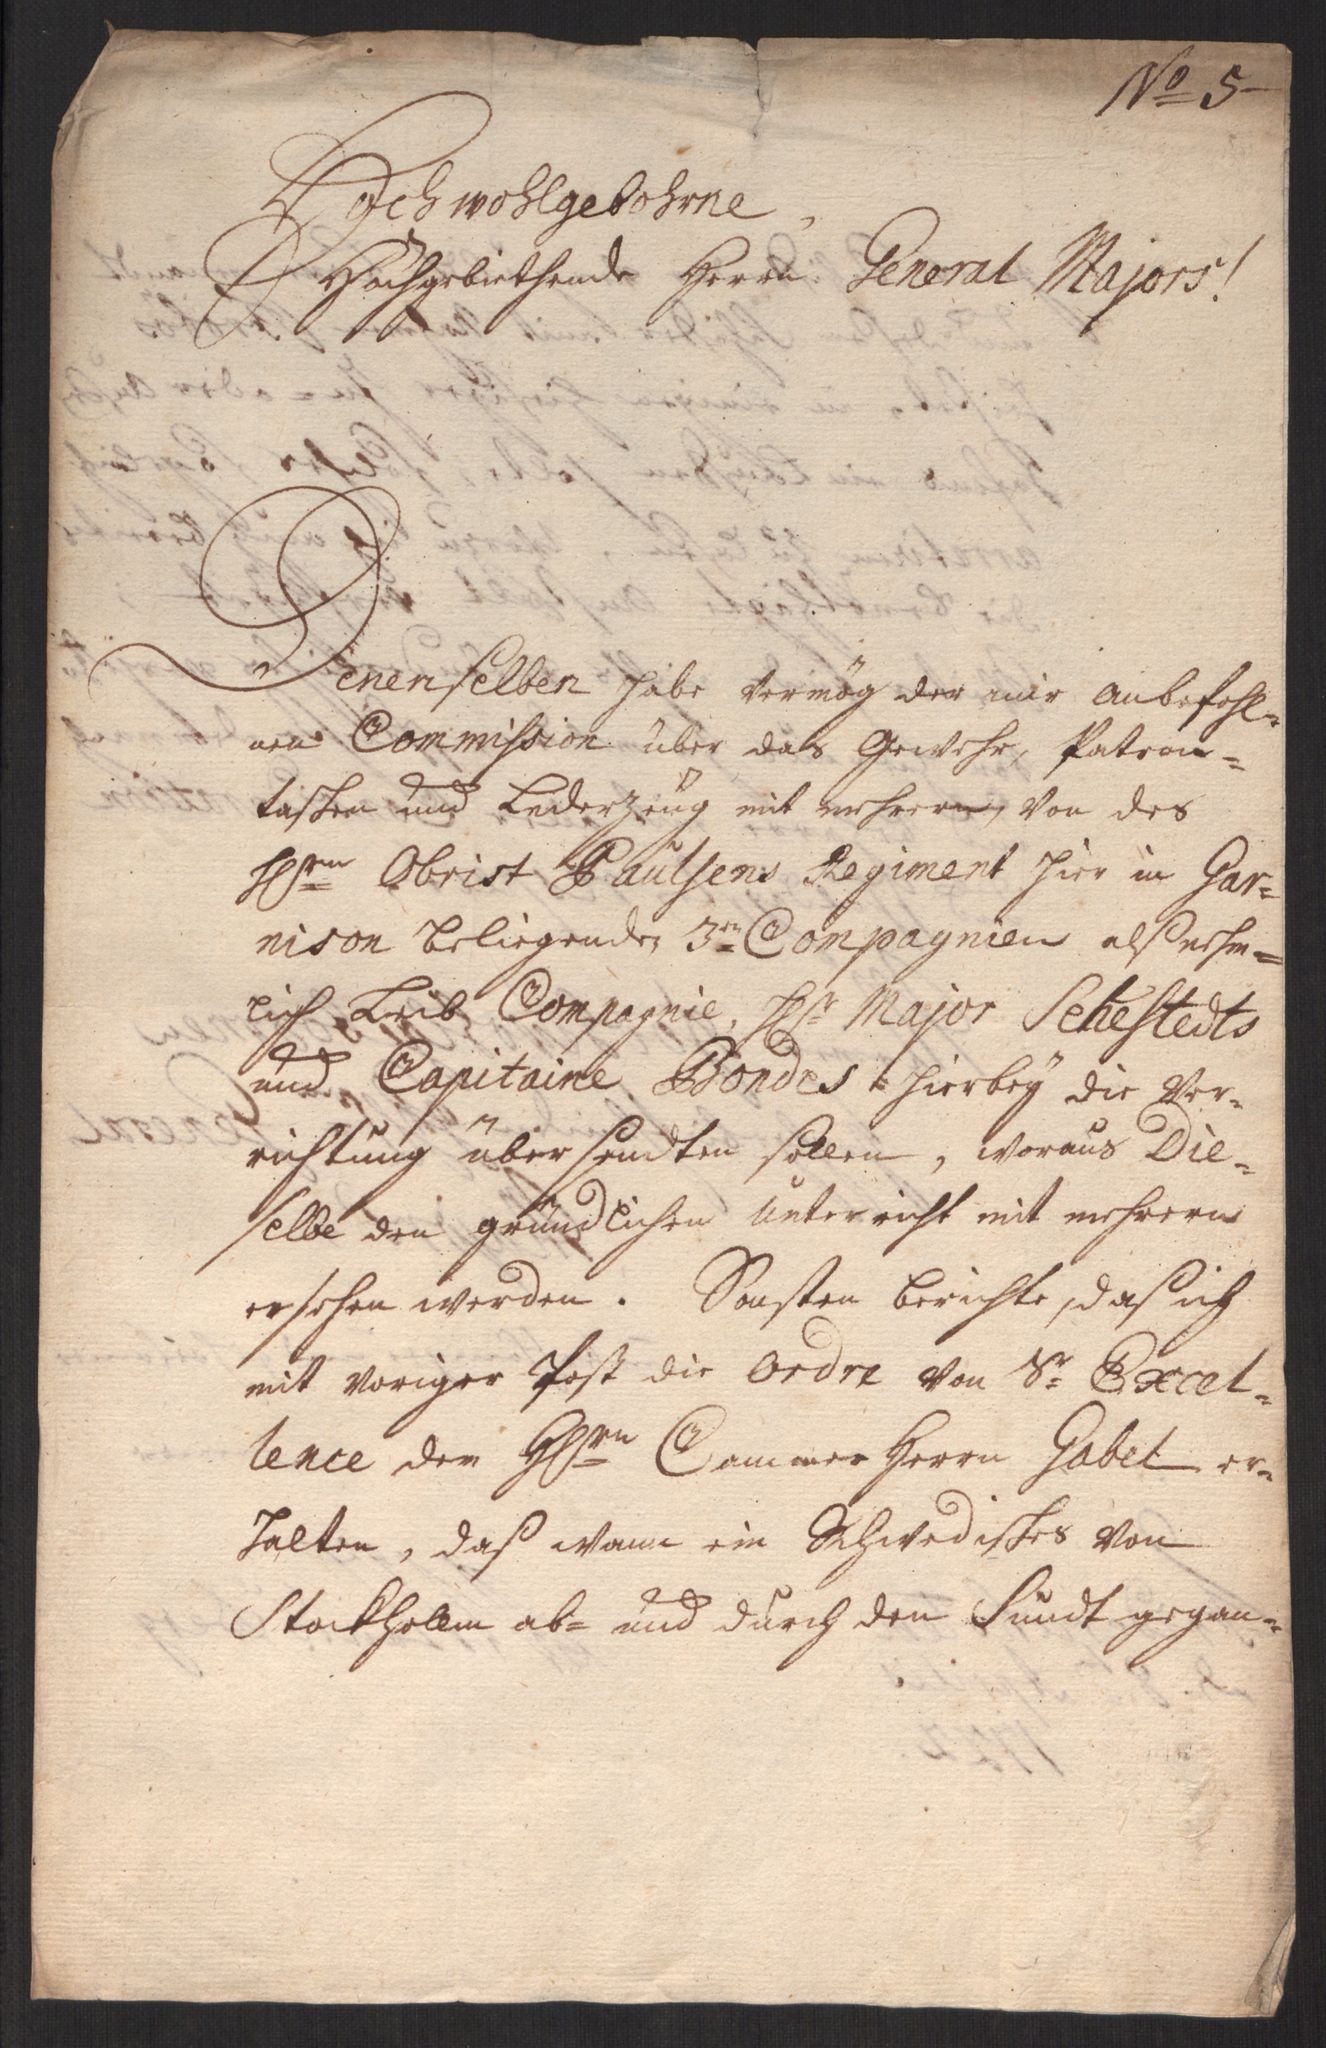 No 5
Hochwohlgebohrne,
Hochgebiethende Herrn General Majors!
Denenselben habe vermög der mir anbefohl=
nen Commission über das Gewehr, Patron=
tasken und Lederzeug mit mehrern, von des
HErrn Obrist Paulsens Regiment hier in Gar=
nison beliegende 3en Compagnien alß nehm=
lich Leib Compagnie, Hr Major Sehestedts
und Capitaine Bondes hierbey die Ver=
richtung über sendten sollen, woraus Die=
selbe den gründlichen Unterricht mit mehrern
ersehen werden. Sonsten berichte, daß ich
mit voriger Post die Ordre von Sr Excel=
lence den HErrn Cammer Herrn Gabel er=
halten, daß wann ein Schwedisches von
Stockholm ab= und durch den Sundt gegan=